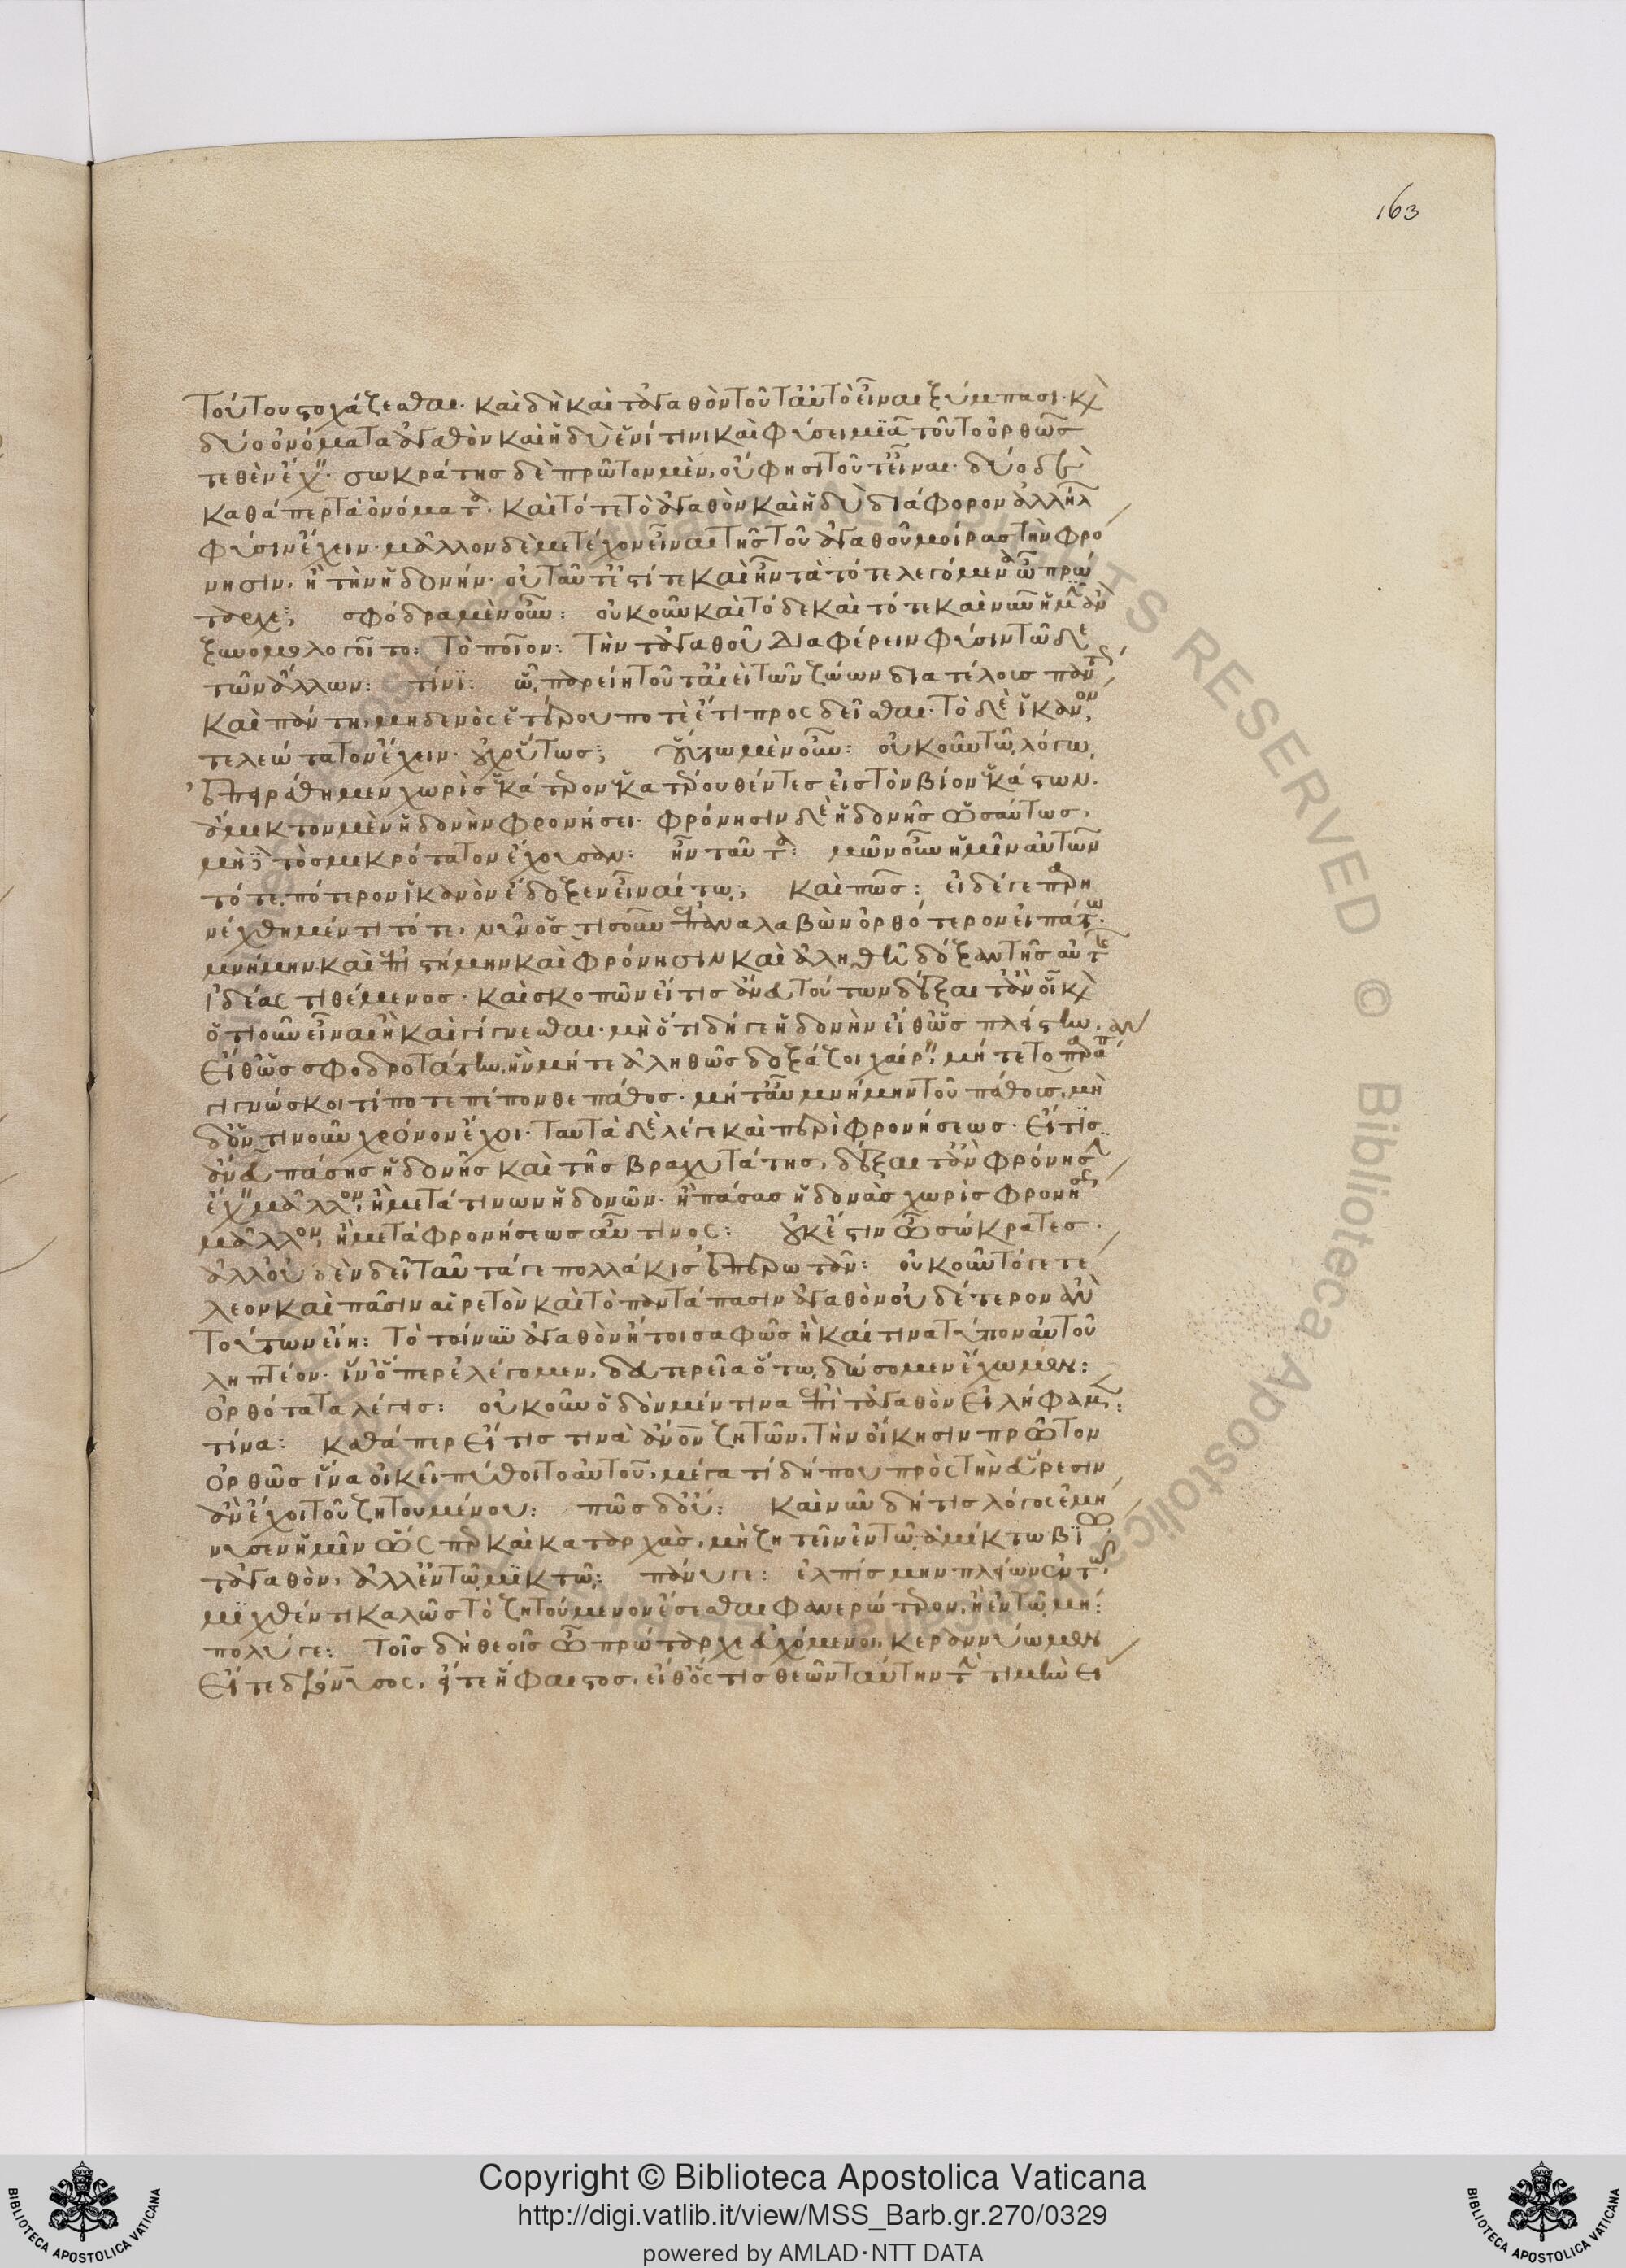 163
τούτου στοχάζεσθαι· καὶ δὴ καὶ τἀγαθὸν τοῦτ' αὐτὸ εἶναι ξύμπασι· καὶ
δύο ὀνόματα ἀγαθὸν καὶ ἡδὺ ἑνί τινι καὶ φύσει μιᾷ τοῦτο ὀρθῶς
τεθὲν ἔχειν· σωκράτης δὲ πρῶτον μὲν, οὔ φησι τοῦτ' εἶναι· δύο δὲ
καθάπερ τὰ ὀνόματα· καὶ τό τε τὸ ἀγαθὸν καὶ ἡδὺ διάφορον ἀλλήλων
φύσιν ἔχειν· μᾶλλον δὲ μετέχον εἶναι τῆς τοῦ ἀγαθοῦ μοίρας τὴν φρό
νησιν, ἢ τὴν ἡδονήν· οὐ ταῦτ' ἔστί τε καὶ ἦν τὰ τότε λεγόμενα ὦ πρώ
ταρχε; σφόδρα μὲν οὖν: οὐκοῦν καὶ τόδε καὶ τότε καὶ νῦν ἡμῖν ἂν
ξυνομολογοῖτο: τὸ ποῖον: τὴν τἀγαθοῦ διαφέρειν φύσιν τῷδε
τῶν ἄλλων: τίνι: ᾧ παρείη τοῦτ' ἀεὶ τῶν ζώων διὰ τέλους πάντως
καὶ πάντη, μηδενὸς ἑτέρου ποτὲ ἔτι προσδεῖσθαι· τὸ δὲ ἱκανὸν
τελεώτατον ἔχειν· οὐχ οὕτως; οὕτω μὲν οὖν: οὐκοῦν τῷ λόγῳ
ἐπειράθημεν χωρὶς ἑκάτερον ἑκατέρου θέντες εἰς τὸν βίον ἑκάστων.
ἄμικτον μὲν ἡδονὴν φρονήσει· φρόνησιν δὲ ἡδονῆς ὡσαύτως,
μηδὲ τὸ σμικρότατον ἔχουσαν: ἦν ταῦτα: μῶν οὖν ἡμῖν αὐτῶν
τότε πότερον ἱκανὸν ἔδοξεν εἶναί τῳ; καὶ πῶς: εἰ δέ γε παρη
νέχθημέν τι τότε, νῦν ὅστισοῦν ἐπαναλαβὼν ὀρθότερον εἰπάτω·
μνήμην καὶ ἐπιστήμην καὶ φρόνησιν καὶ ἀληθῆ δόξαν τῆς αὐτῆς
ἰδέας τιθέμενος· καὶ σκοπῶν εἴ τις ἄνευ τούτων δέξαιτ' ἄν οἱ καὶ
ὁτιοῦν εἶναι ἢ καὶ γίγνεσθαι· μὴ ὅτι δή γε ἡδονὴν εἴθ' ὡς πλείστην,
εἴθ' ὡς σφοδροτάτην, ἣν μήτε ἀληθῶς δοξάζοι χαίρειν, μήτε τὸ παράπαν
γιγνώσκοι τί ποτε πέπονθε πάθος· μήτ' αὖ μνήμην τοῦ πάθους, μὴ
δ' ὁντινοῦν χρόνον ἔχοι· ταυτὰ δὲ λέγε καὶ περὶ φρονήσεως· εἴ τις
ἄνευ πάσης ἡδονῆς καὶ τῆς βραχυτάτης, δέξαιτ' ἂν φρόνησιν
ἔχειν μᾶλλον, ἢ μετά τινων ἡδονῶν· ἢ πάσας ἡδονὰς χωρὶς φρονήσεως
μᾶλλον, ἢ μετὰ φρονήσεως αὖ τινος: οὐκ ἔστιν ὦ σώκρατες·
ἀλλ' οὐδὲν δεῖ ταῦτά γε πολλάκις ἐπερωτᾶν: οὐκοῦν τό γε τέ
λεον καὶ πᾶσιν αἱρετὸν καὶ τὸ παντάπασιν ἀγαθὸν οὐδέτερον ἂν
τούτων εἴη: τὸ τοίνυν ἀγαθὸν ἤτοι σαφῶς ἢ καί τινα τύπον αὐτοῦ
ληπτέον· ἵν' ὅπερ ἐλέγομεν, δευτερεῖα ὅτῳ δώσομεν ἔχωμεν:
ὀρθότατα λέγεις: οὐκοῦν ὁδὸν μέν τινα ἐπὶ τἀγαθὸν εἰλήφαμεν:
τίνα: καθάπερ εἴ τις τινὰ ἄνθρωπον ζητῶν, τὴν οἴκησιν πρῶτον
ὀρθῶς ἵνα οἰκεῖ πύθοιτο αὐτοῦ, μέγα τι δήπου πρὸς τὴν εὕρεσιν
ἂν ἔχοι τοῦ ζητουμένου: πῶς δ' οὔ: καὶ νῦν δή τις λόγος ἐμή
νυσεν ἡμῖν ὥσπερ καὶ κατ' ἀρχὰς, μὴ ζητεῖν ἐν τῷ ἀμίκτῳ βίῳ
τἀγαθὸν, ἀλλ' ἐν τῷ μικτῷ: πάνυ γε: ἐλπὶς μὴν πλείων ἐν τῷ
μιχθέντι καλῶς τὸ ζητούμενον ἔσεσθαι φανερώτερον, ἢ ἐν τῷ μή:
πολύ γε: τοῖς δὴ θεοῖς ὦ πρώταρχε εὐχόμενοι, κεραννύωμεν
εἴτε διόνυσος, εἴτε ἥφαιστος, εἴθ' ὅστις θεῶν ταύτην τὴν τιμὴν εἴ
Copyright © Biblioteca Apostolica Vaticana
http://digi.vatlib.it/view/MSS_Barb.gr.270/0329
powered by AMLAD·NTT DATA